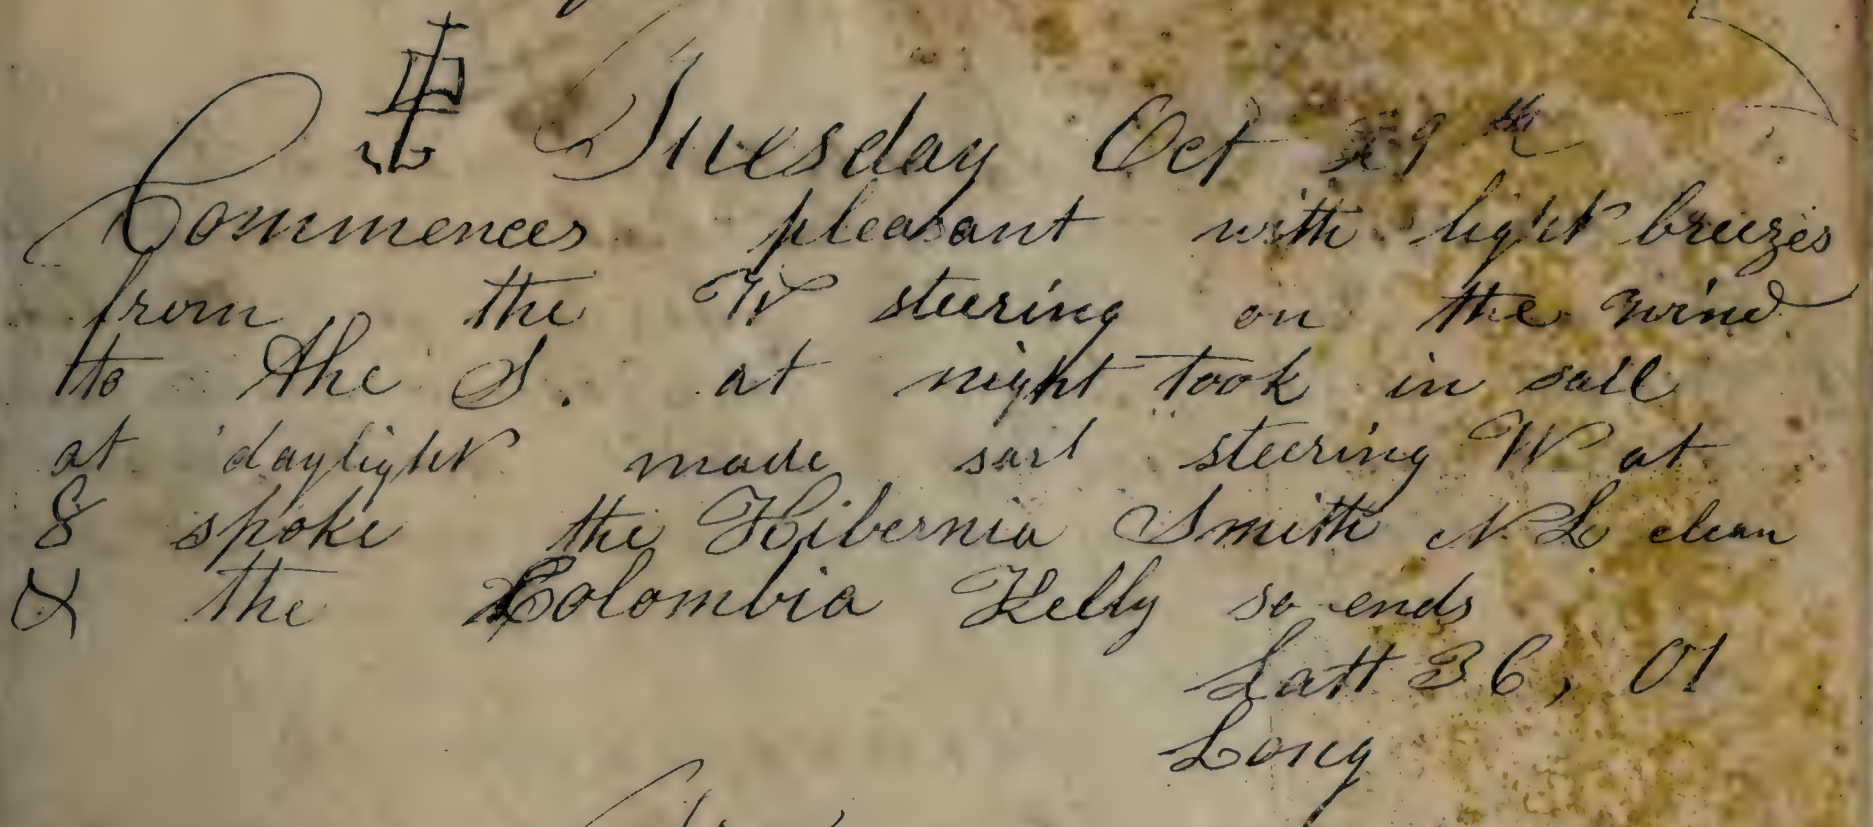 Tuesday Oct 29th
Commences pleasant with light breezes
from the W steering on the wind
to the S. at night took in sail
at daylight made sail steering W at
8 spoke the Hibernia Smith N L clean
& the Colombia Kelly so ends
Latt 36, 01
Long